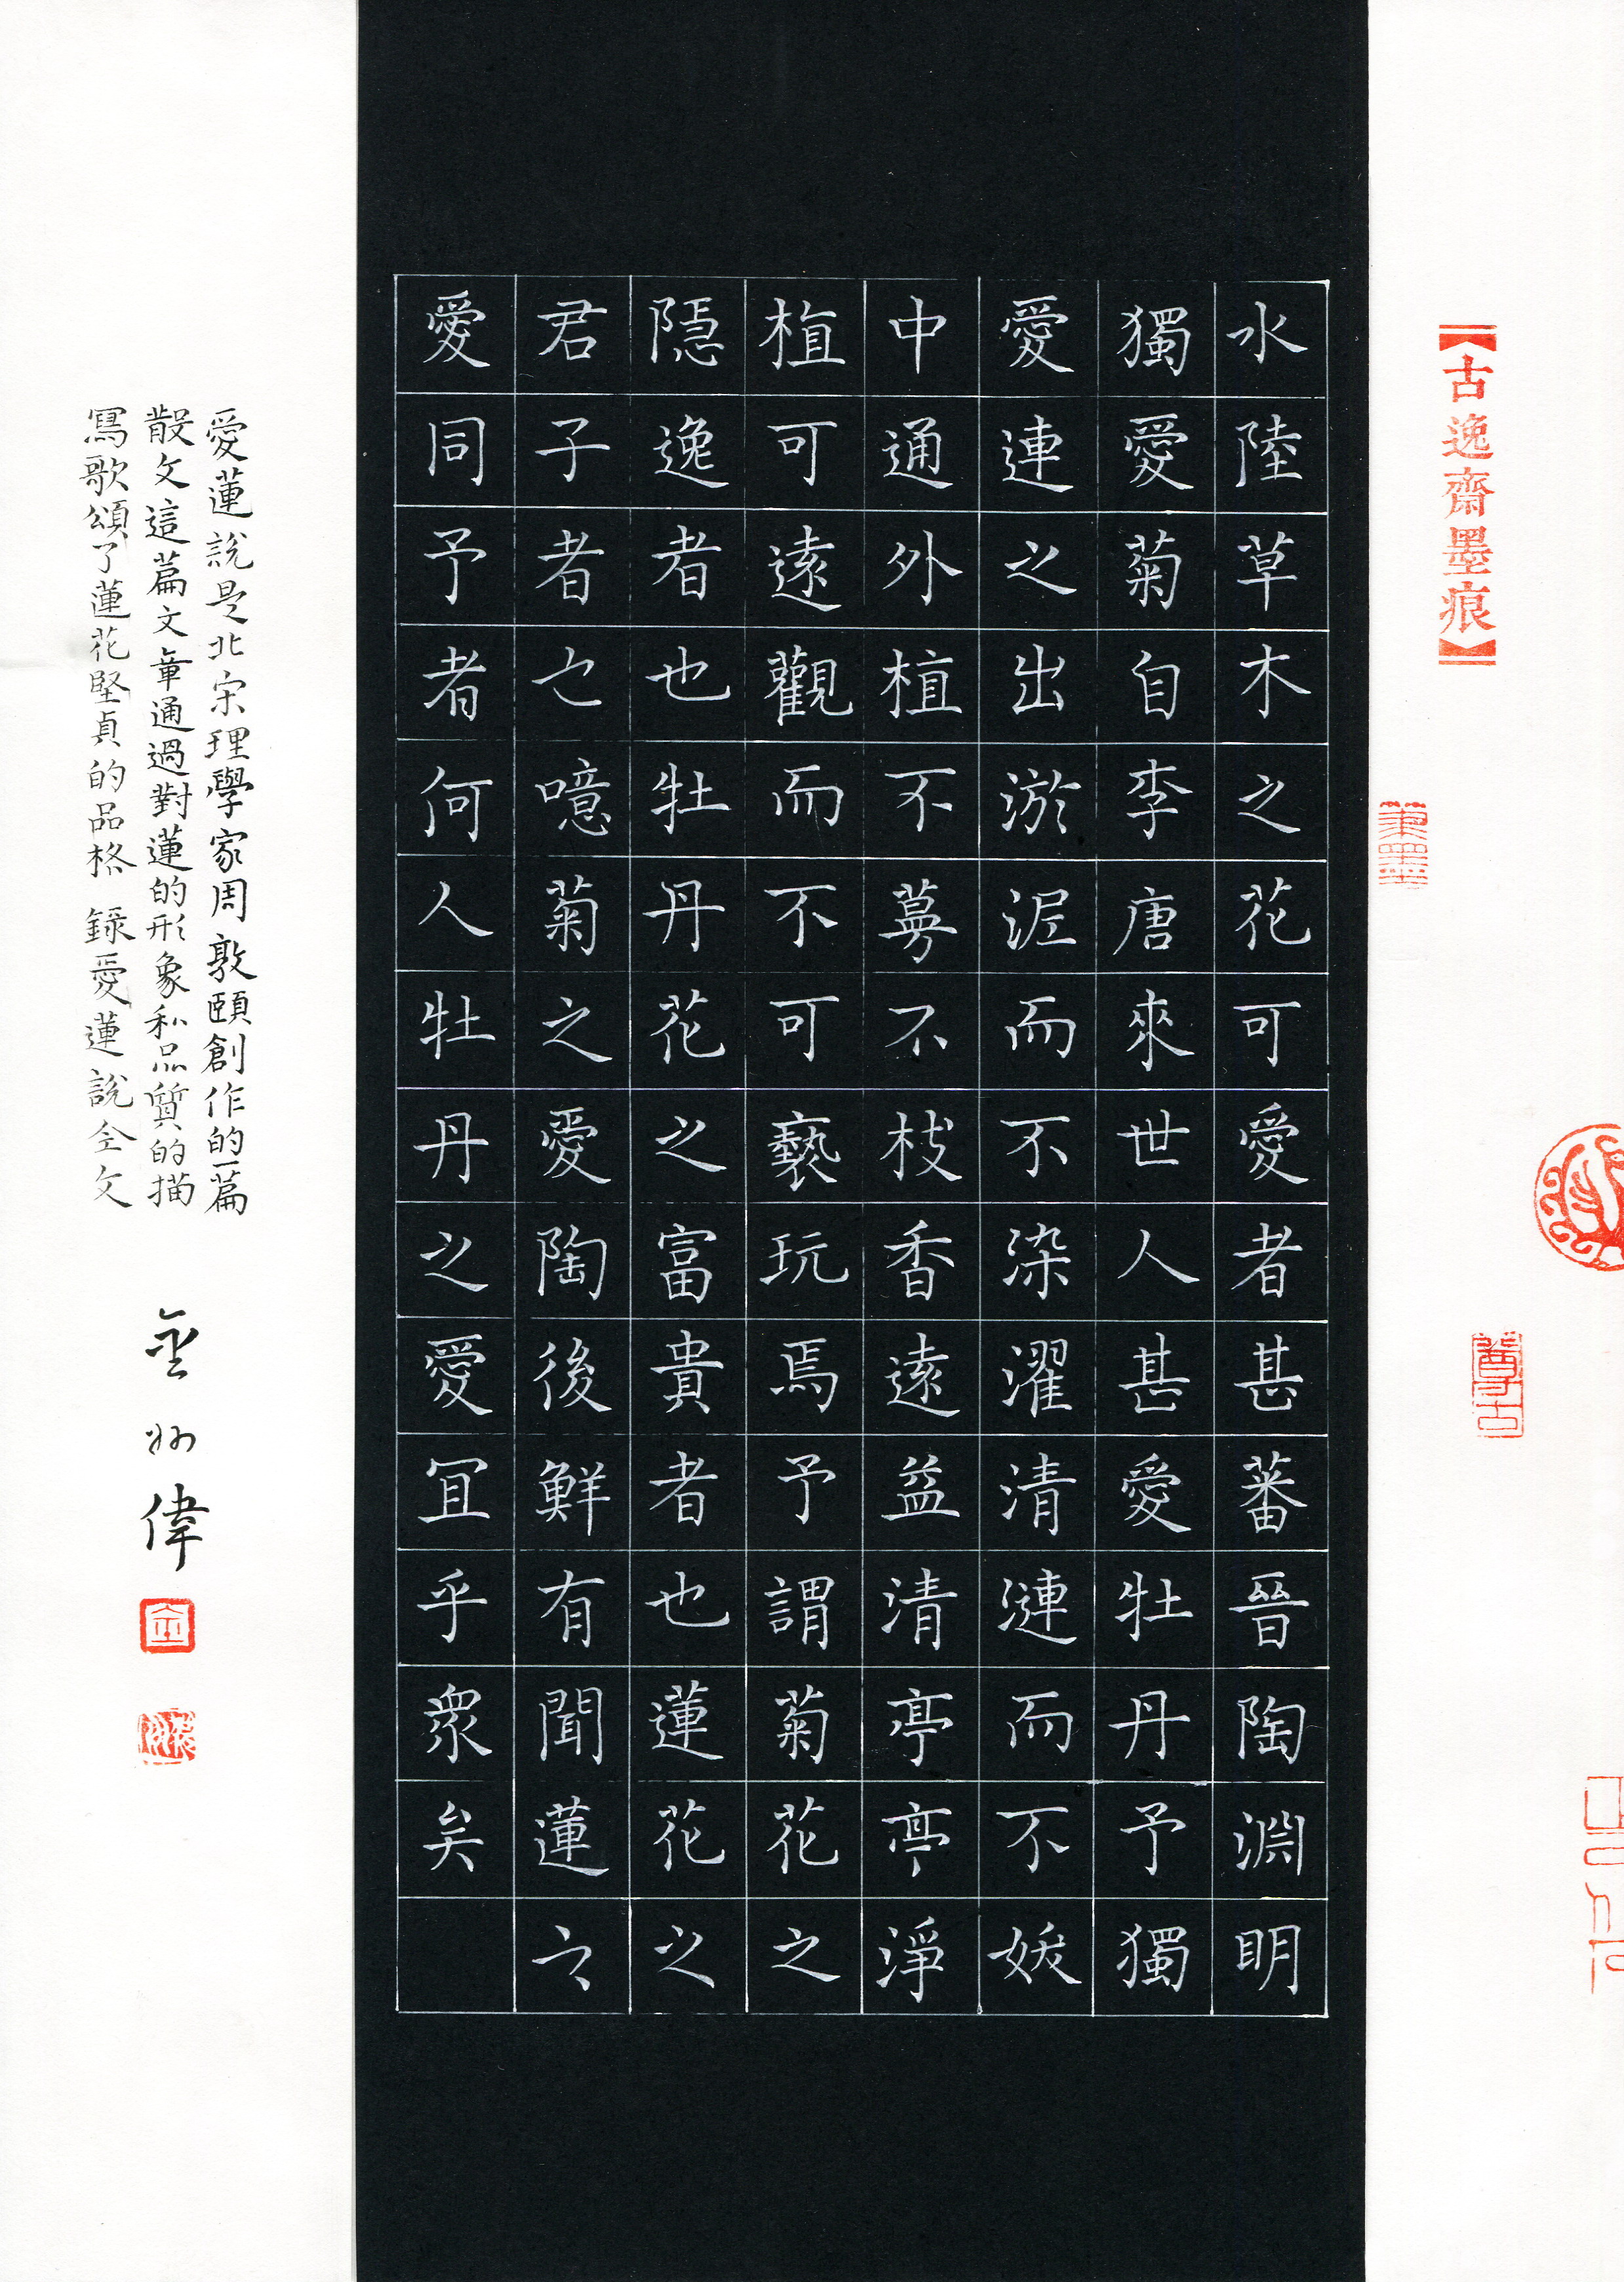 【古逸齋墨痕】
筆墨
尊古
水陸草木之花可愛者甚蕃晉陶淵明
獨愛菊自李唐來世人甚愛牡丹予獨
愛連之出淤泥而不染濯清漣而不妖
中通外植不蔓不枝香遠益清亭亭淨
植可遠觀而不可褻玩焉予謂菊花之
隱逸者也牡丹花之富貴者也蓮花之
君子者也噫菊之愛陶後鮮有聞蓮之
愛同予者何人牡丹之愛宜乎眾矣
愛蓮說是北宋理學家周敦頤創作的一篇
散文這篇文章通過對蓮的形象和品質的描
寫歌頌了蓮花堅貞的品格 錄愛蓮說全文
金 偉
金